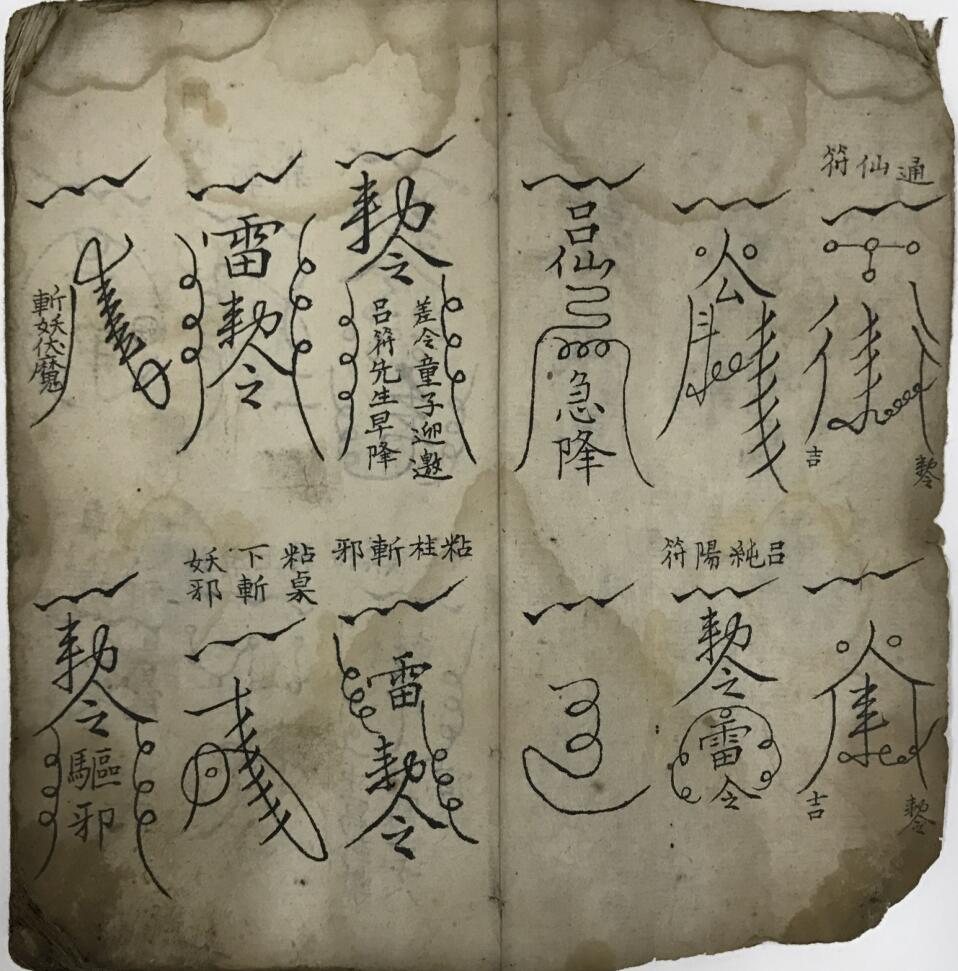 通仙符
吉
勅令
公
斗
呂仙
急降
勅令
差令童子迎邀
呂符先生早降
雷
勅令
斬妖伏魔
吉
勅令
呂純陽符
勅令
雷令
粘柱斬邪
雷
勅令
粘桌
下斬
妖邪
勅令
驅邪